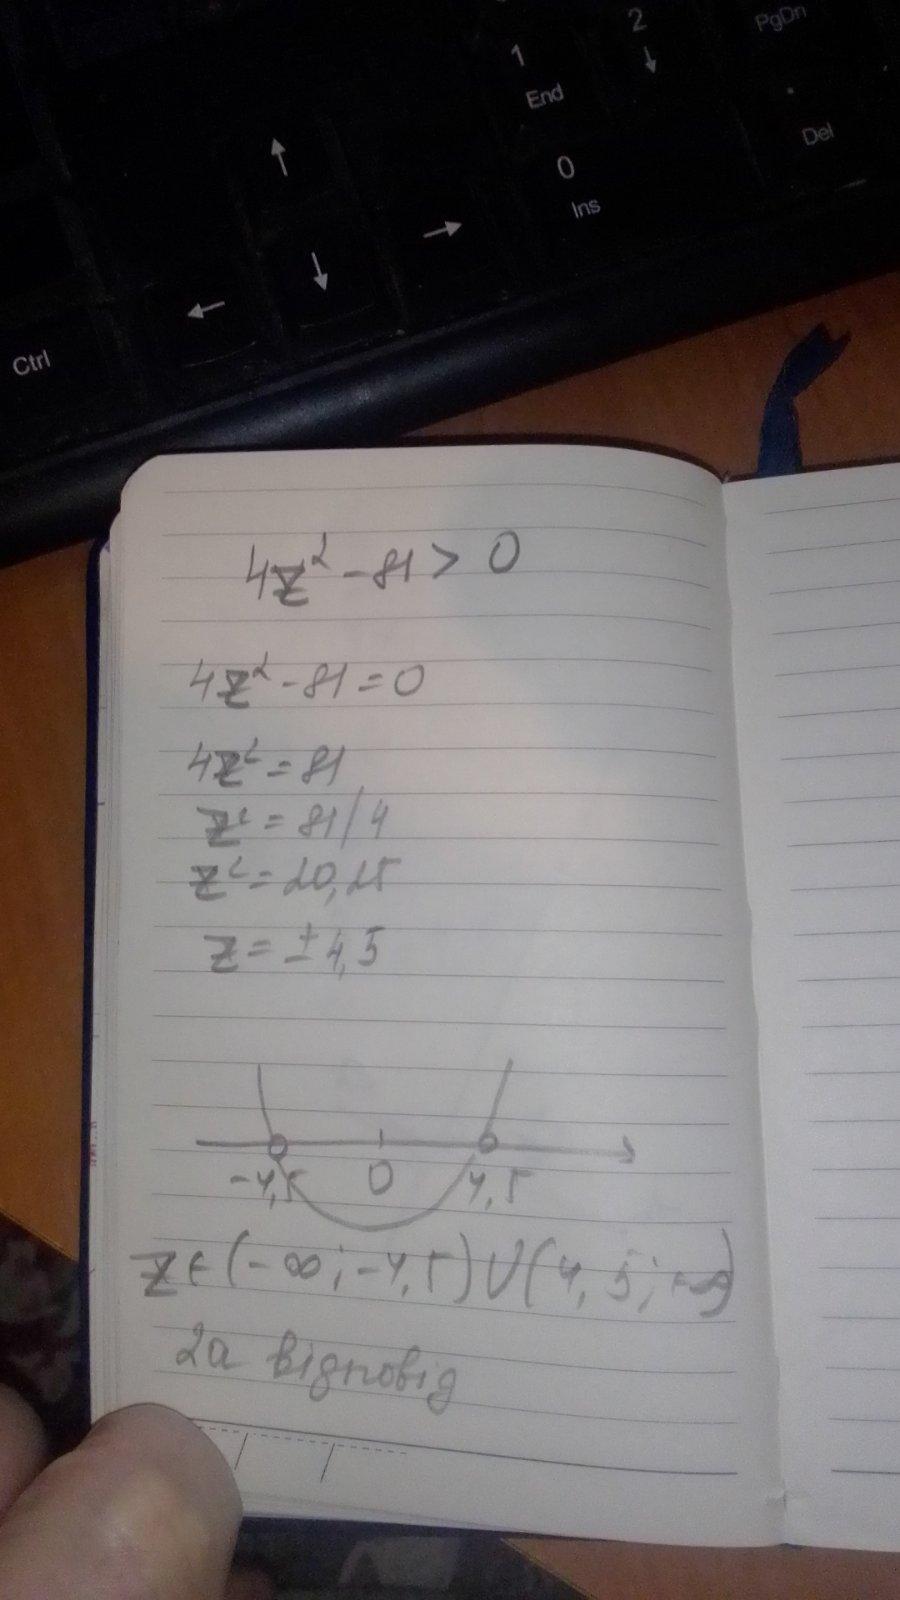 1
End
2
↓
PgDn
.
Del
0
Ins
↑
←
↓
→
Ctrl
4z² - 81 > 0
4z² - 81 = 0
4z² = 81
z² = 81/4
z² = 20,25
z = ± 4,5
-4,5 0 4,5
z ∈ (-∞; -4,5) ∪ (4,5; +∞)
2а відповід